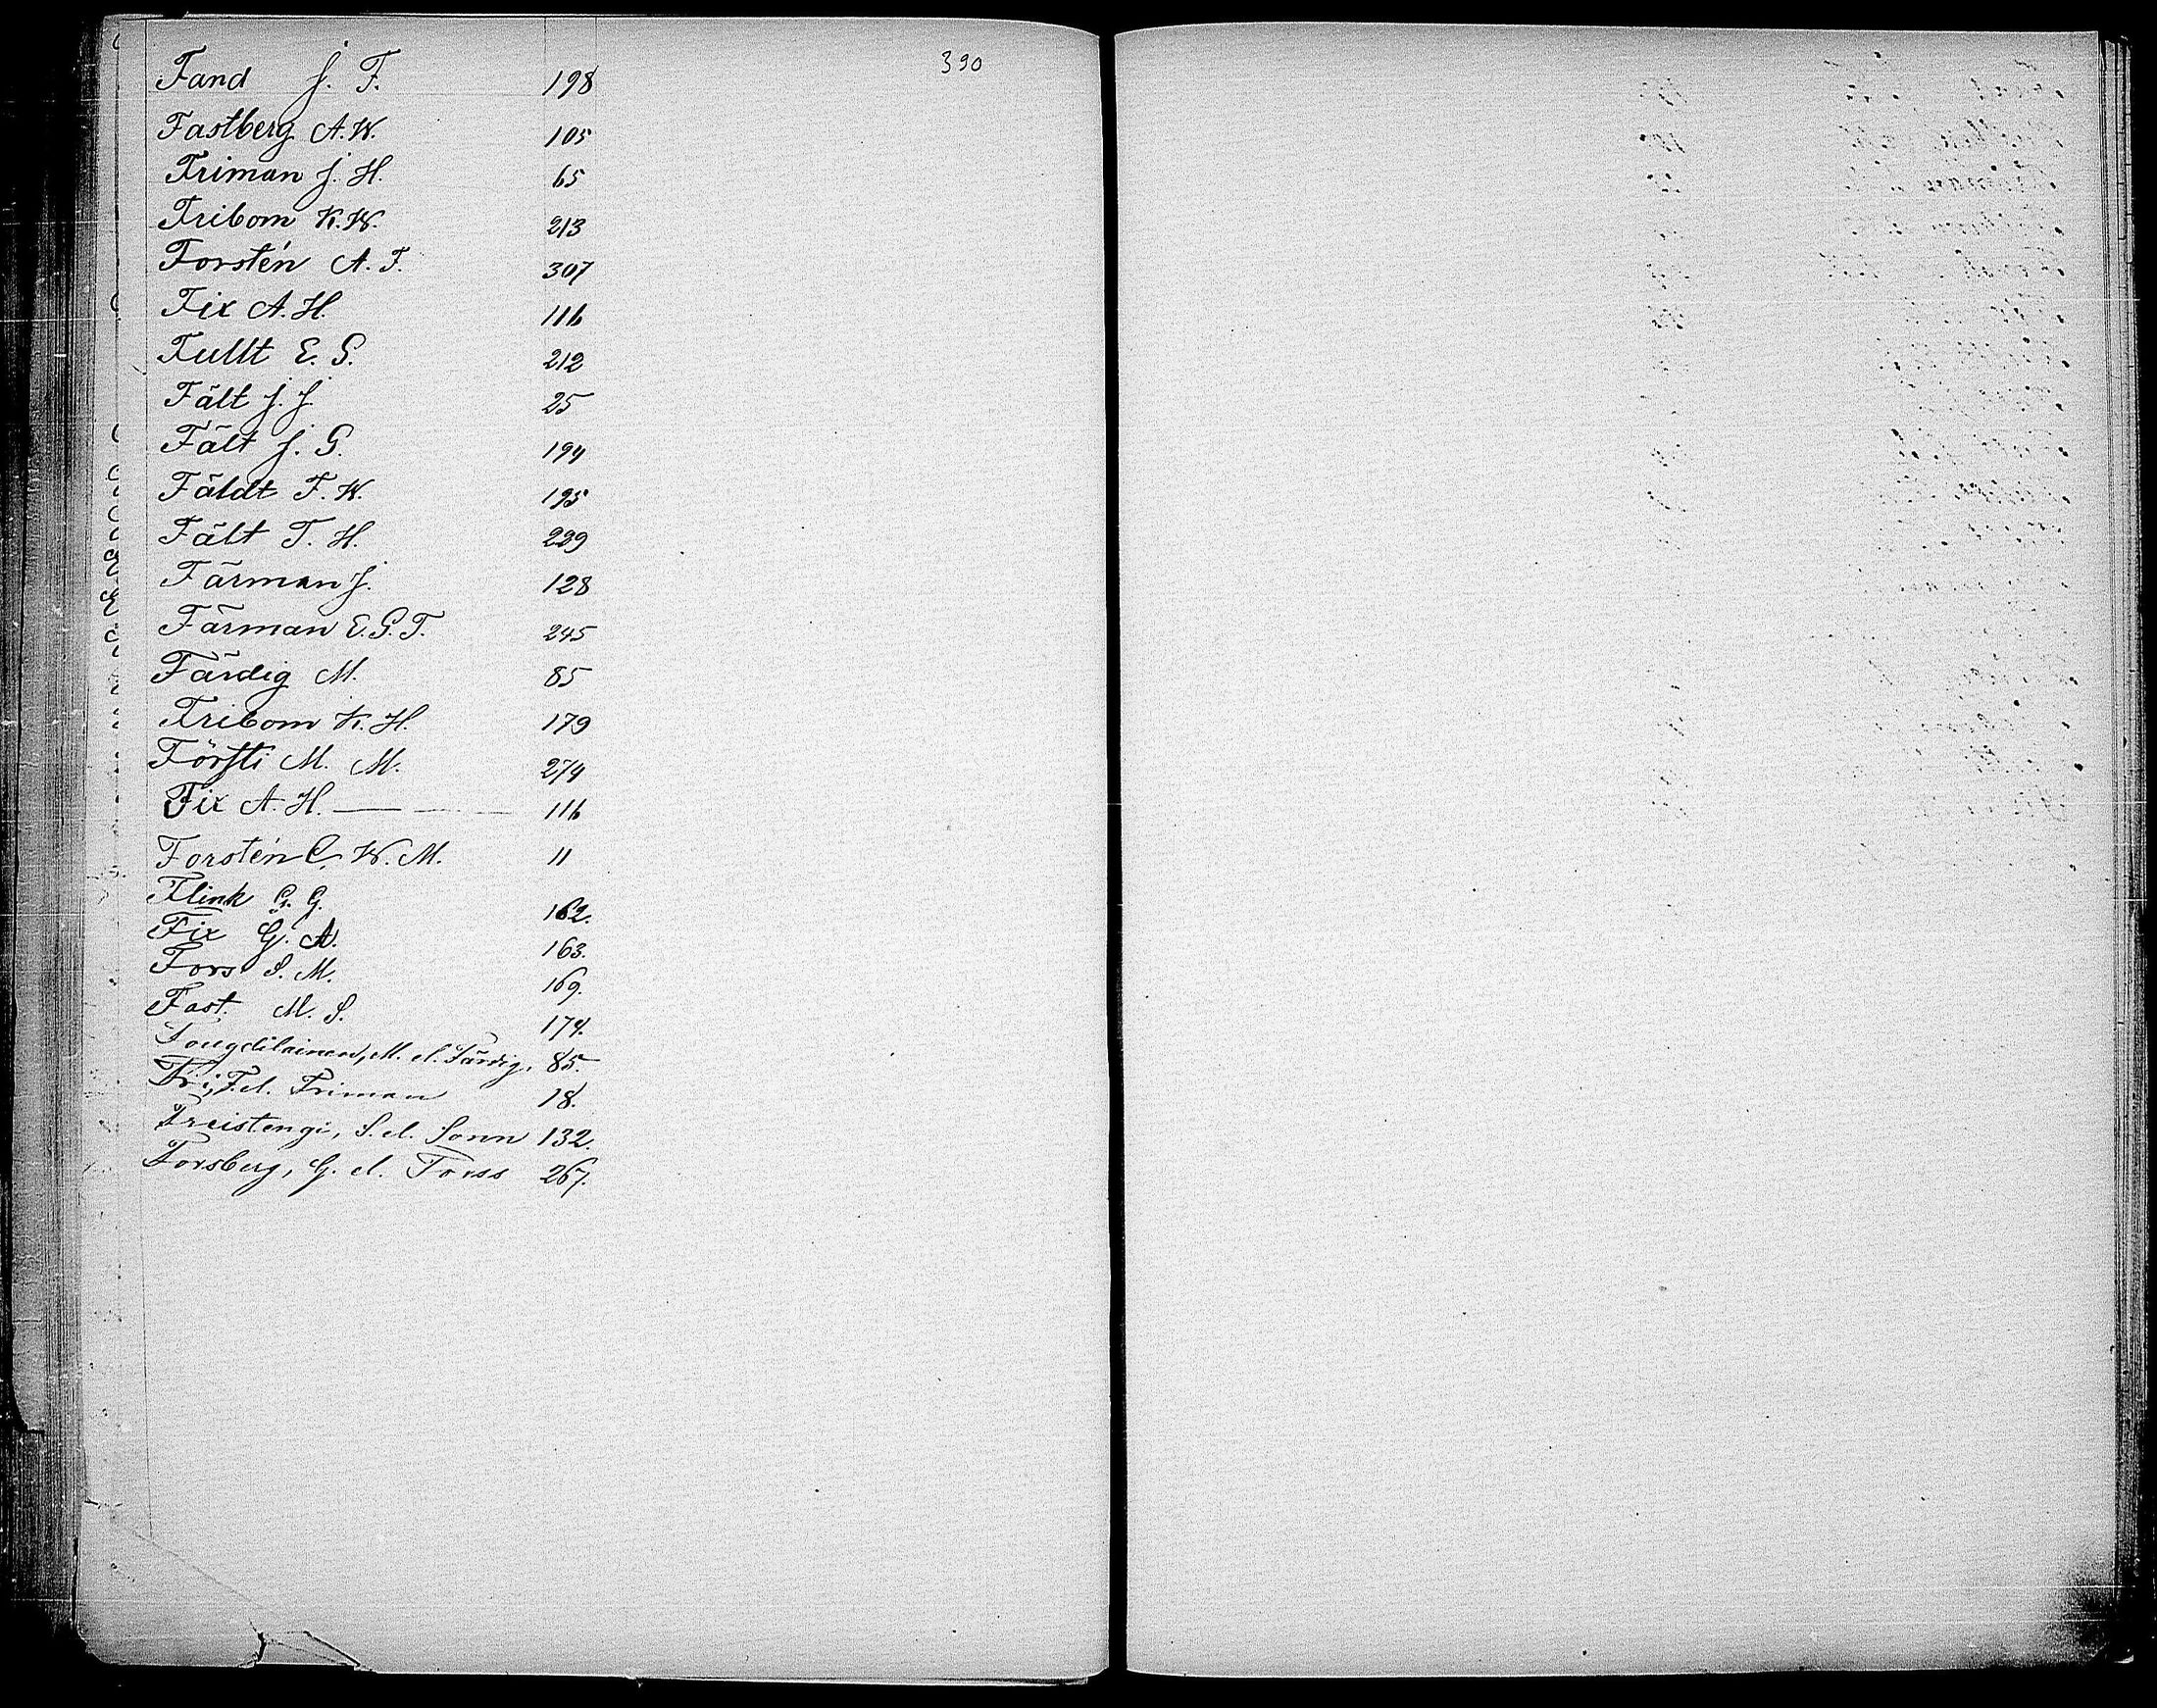 390
Fand J. F. 198
Fastberg A. W. 105
Friman J. H. 65
Fribom K. W. 213
Forstén A. F. 307
Fix A. H. 116
Fullt E. G. 212
Fält J. J. 25
Fält J. G. 194
Fäldt F. W. 195
Fält T. H. 229
Färman J. 128
Färman E. G. T. 245
Färdig M. 85
Fribom K. H. 179
Försti M. M. 274
Fix A. H. 116
Forstén C. W. M. 11
Flink G. G. 162.
Fix G. A. 163.
Fors S. M. 169.
Fast. M. S. 174.
M. el. Färdig, 85.
Fri, F. el. Friman 18.
Freistengi, S. el. Sonn 132.
Forsberg, G. el. Forss 267.